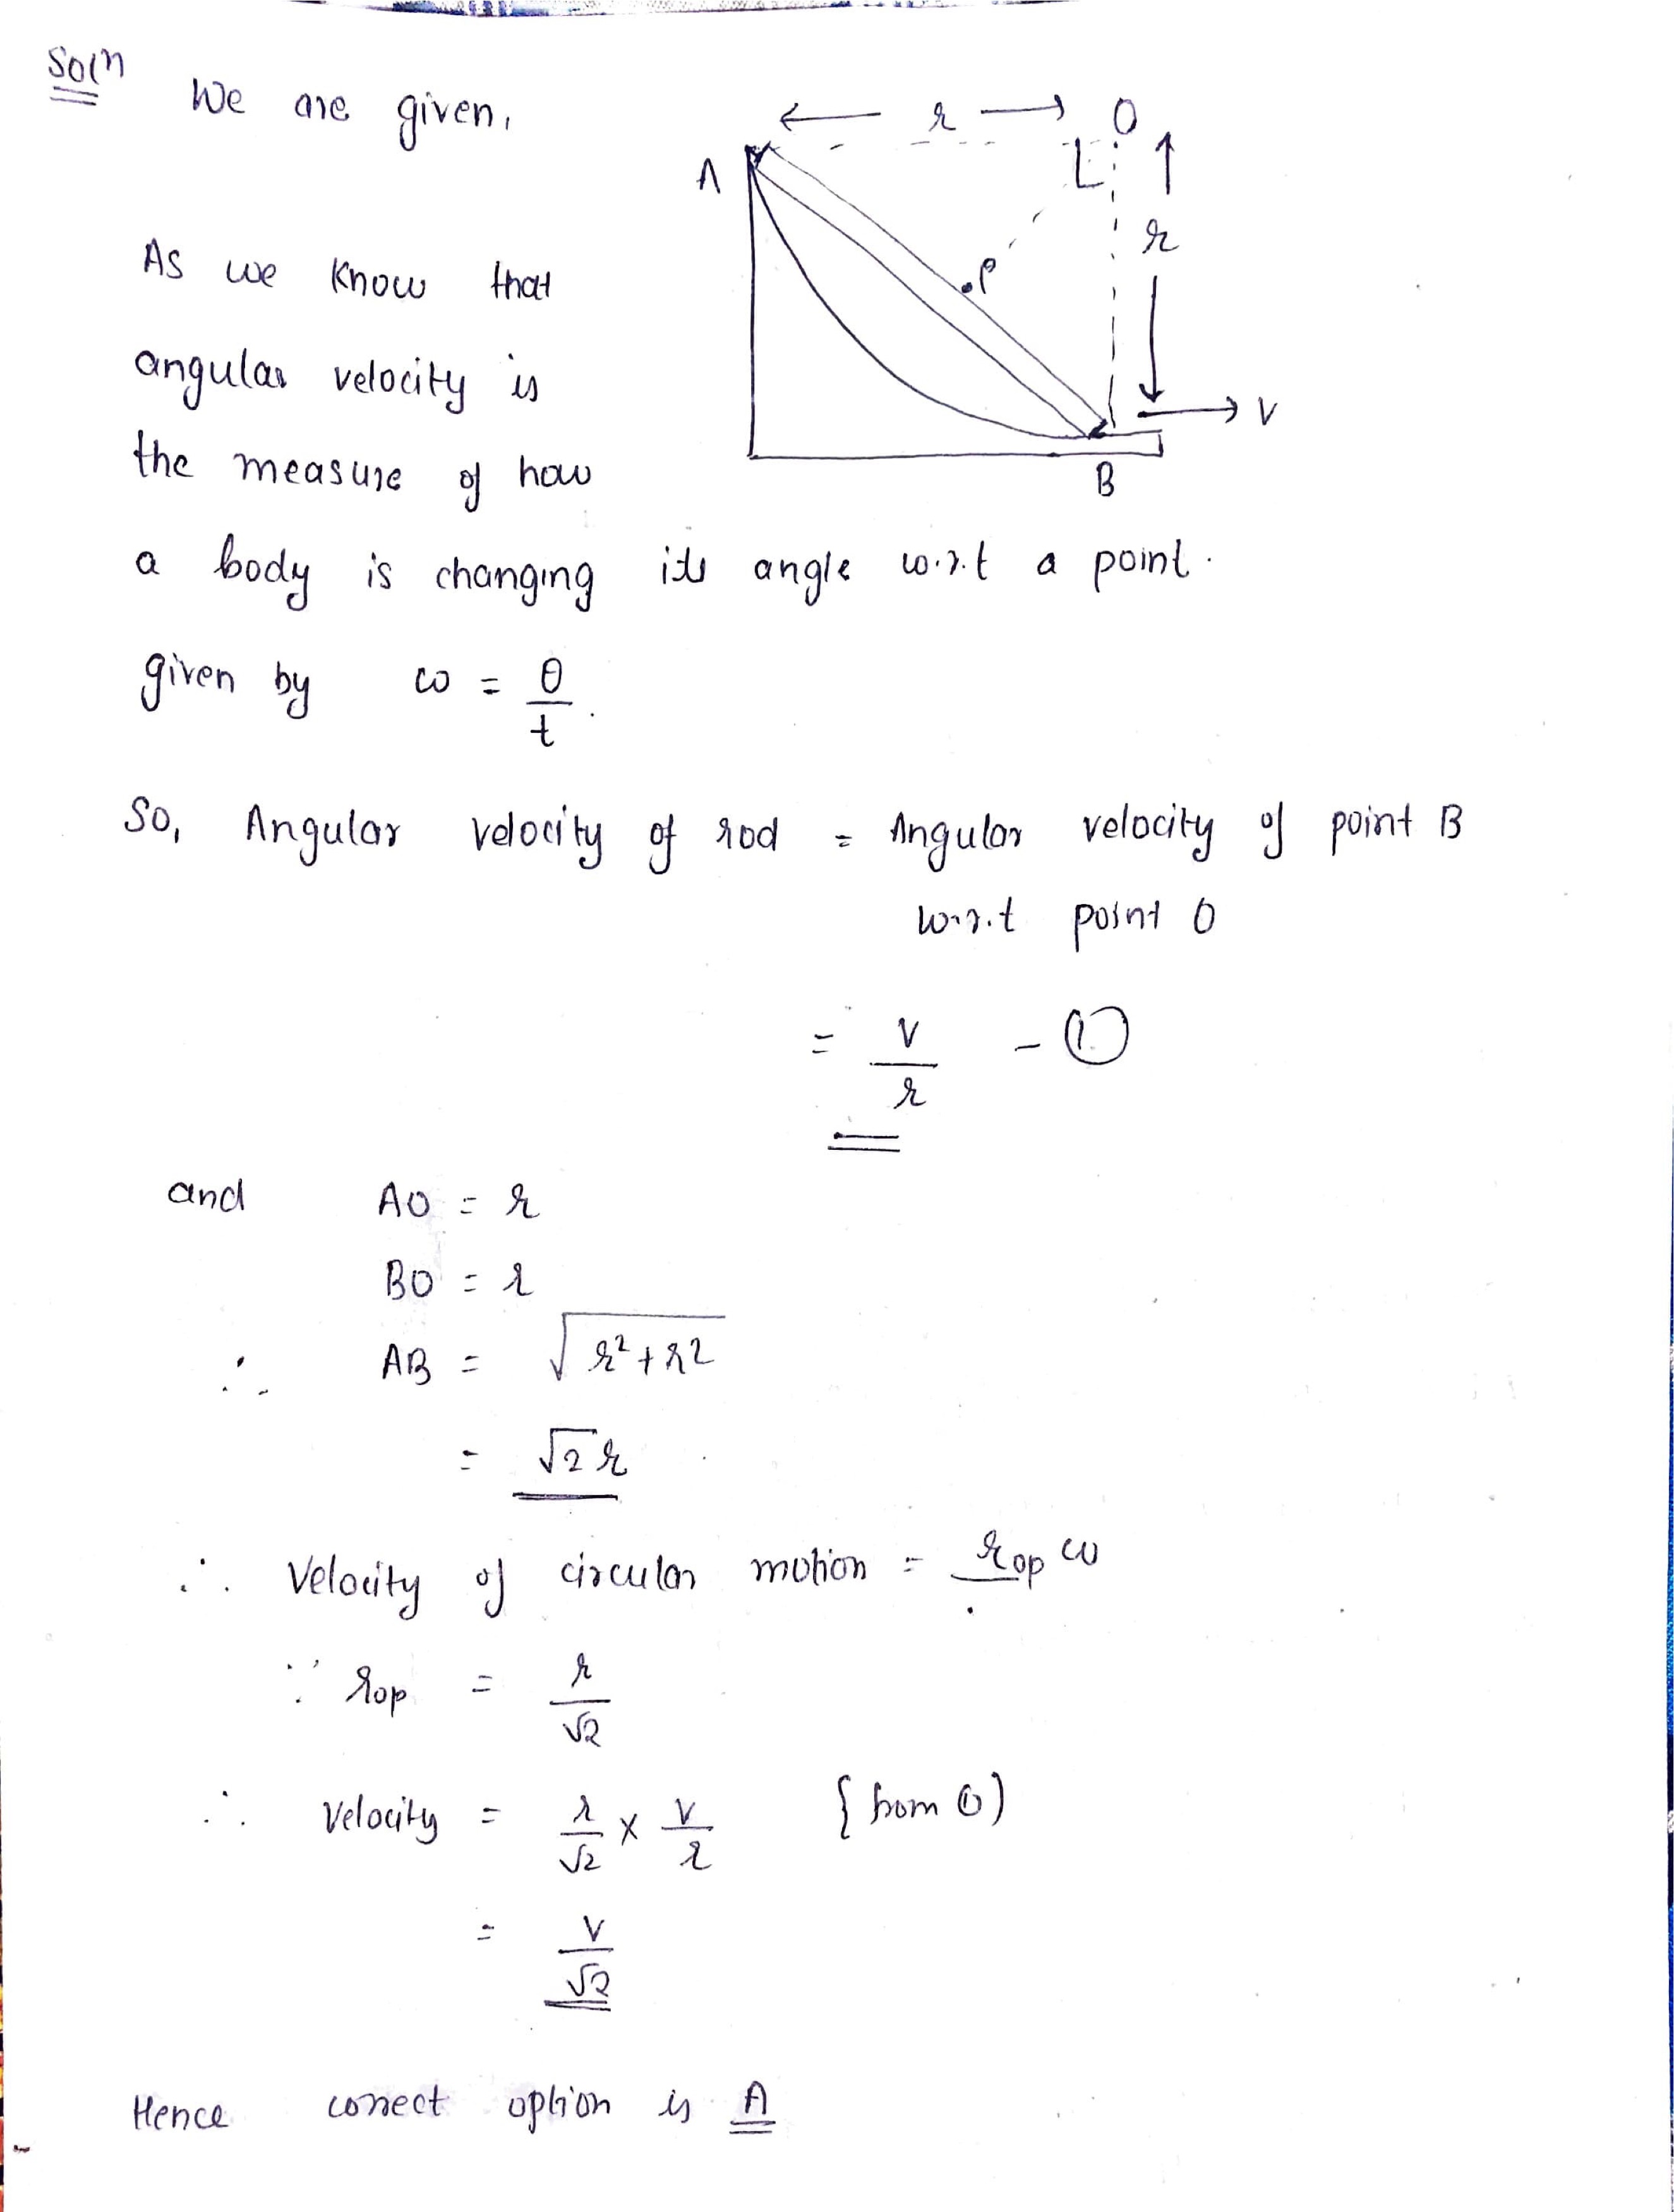 Soln We are given,
← r → O
A
r
As we know that
P
angular velocity is
V
the measure of how
B
a body is changing its angle w.r.t a point.
given by ω = θ/t.
So, Angular velocity of rod = Angular velocity of point B
w.r.t point O
= V/r - ①
and AO = r
BO = r
∴ AB = √(r²+r²)
= √2 r
∴ Velocity of circular motion = r_op ω
∵ r_op = r/√2
∴ Velocity = r/√2 × V/r {from ①)
= V/√2
Hence correct option is A